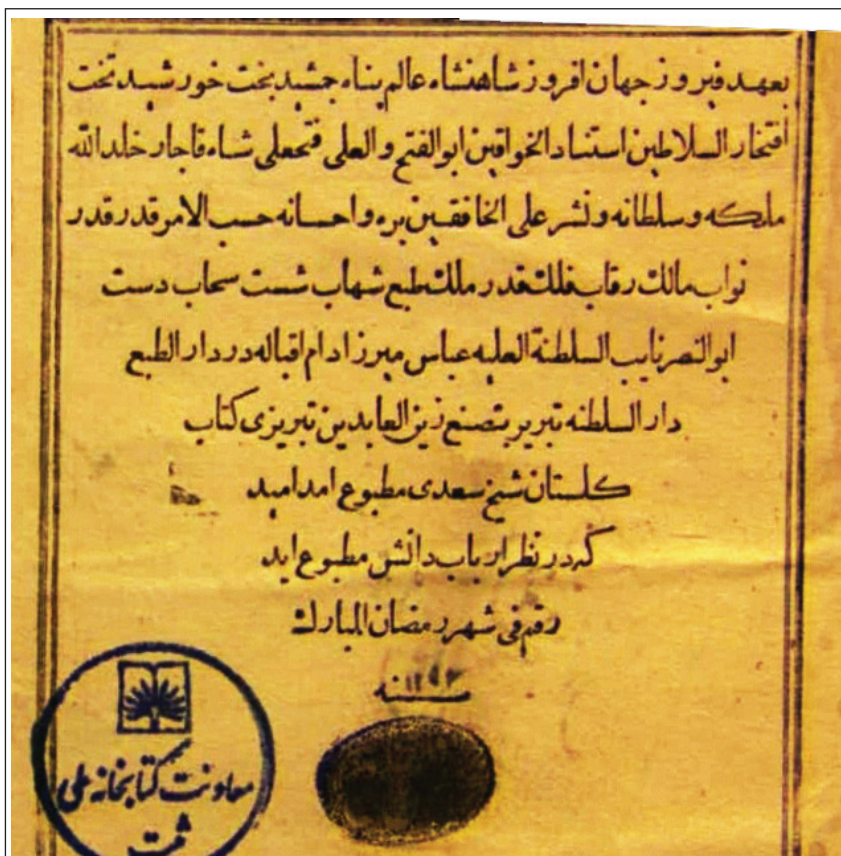 بعهد فیروز جهان افروز شاهنشاه عالم پناه جمشید بخت خورشید تخت
افتخار السلاطین استناد الخواقین ابو الفتح والعلی فتحعلی شاه قاجار خلد الله
ملکه و سلطانه و نشر علی الخافقین بره و احسانه حسب الامر قدر قدر
نواب مالک رقاب فلک قدر ملک طبع شهاب شست سحاب دست
ابو النصر نایب السلطنة العلیه عباس میرزا دام اقباله در دار الطبع
دار السلطنه تبریز بتصنع زین العابدین تبریزی کتاب
کلستان شیخ سعدی مطبوع امد امید
که در نظر ارباب دانش مطبوع اید
رقم فی شهر رمضان المبارک
سنه
معاونت کتابخانه ملی
ثبت